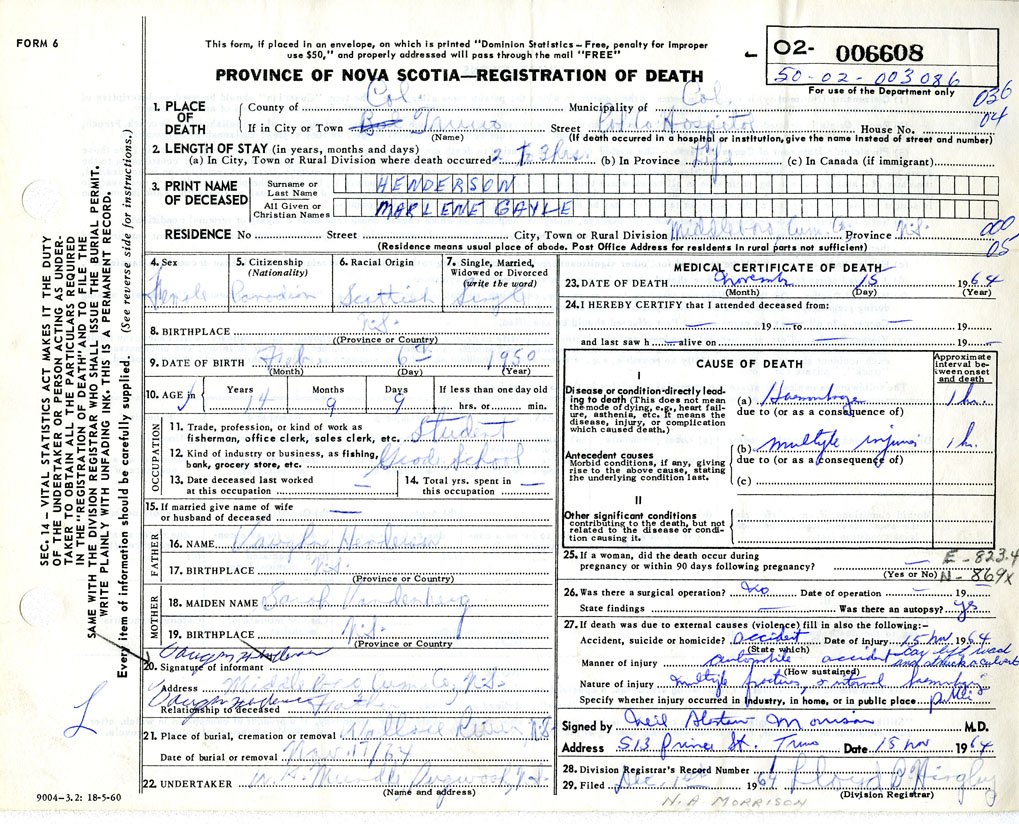 FORM 6
This form, if placed in an envelope, on which is printed "Dominion Statistics – Free, penalty for improper
use $50," and properly addressed will pass through the mail "FREE"
PROVINCE OF NOVA SCOTIA—REGISTRATION OF DEATH
02- 006608
50-02-003086
For use of the Department only
036
04
1. PLACE OF DEATH
County of Col. Municipality of Col.
If in City or Town Truro Street Col. Co. Hospital House No.
(Name) (If death occurred in a hospital or institution, give the name instead of street and number)
2. LENGTH OF STAY (in years, months and days)
(a) In City, Town or Rural Division where death occurred 2 to 3 hrs. (b) In Province Life (c) In Canada (if immigrant)
3. PRINT NAME OF DECEASED
Surname or Last Name HENDERSON
All Given or Christian Names MARLENE GAYLE
RESIDENCE No Street City, Town or Rural Division Middleboro Cum. Co. Province N.S.
000
05
(Residence means usual place of abode. Post Office Address for residents in rural parts not sufficient)
4. Sex
Female
5. Citizenship (Nationality)
Canadian
6. Racial Origin
Scottish
7. Single, Married, Widowed or Divorced (write the word)
Single
8. BIRTHPLACE N.S.
(Province or Country)
9. DATE OF BIRTH Feb. 6th 1950
(Month) (Day) (Year)
10. AGE in Years Months Days If less than one day old
14 9 9 hrs. or min.
OCCUPATION
11. Trade, profession, or kind of work as
fisherman, office clerk, sales clerk, etc. Student
12. Kind of industry or business, as fishing,
bank, grocery store, etc. Grade School
13. Date deceased last worked
at this occupation —
14. Total yrs. spent in
this occupation —
15. If married give name of wife
or husband of deceased —
FATHER
16. NAME Vaughn Henderson
17. BIRTHPLACE N.S.
(Province or Country)
MOTHER
18. MAIDEN NAME Sarah Vandenberg
19. BIRTHPLACE N.S.
(Province or Country)
20. Signature of informant Vaughn Henderson
Address Middleboro Cum. Co., N.S.
Relationship to deceased Father
21. Place of burial, cremation or removal Wallace River, N.S.
Date of burial or removal Nov. 17/64
22. UNDERTAKER Pugwash, N.S.
(Name and address)
9004—3.2: 18-5-60
MEDICAL CERTIFICATE OF DEATH
23. DATE OF DEATH November 15 1964
(Month) (Day) (Year)
24. I HEREBY CERTIFY that I attended deceased from:
— 19 — to — 19
and last saw h — alive on — 19 —
CAUSE OF DEATH
Approximate interval between onset and death
I
Disease or condition-directly leading to death (This does not mean the mode of dying, e.g., heart failure, asthenia, etc. It means the disease, injury, or complication which caused death.)
(a) Haemorrhage 1 hr.
due to (or as a consequence of)
Antecedent causes
Morbid conditions, if any, giving rise to the above cause, stating the underlying condition last.
(b) multiple injuries 1 hr.
due to (or as a consequence of)
(c)
II
Other significant conditions
contributing to the death, but not related to the disease or condition causing it.
25. If a woman, did the death occur during
pregnancy or within 90 days following pregnancy? —
(Yes or No)
E-823.4
N-869X
26. Was there a surgical operation? No Date of operation — 19
State findings — Was there an autopsy? Yes
27. If death was due to external causes (violence) fill in also the following:-
Accident, suicide or homicide? accident Date of injury 15 Nov 1964
(State which)
Manner of injury automobile accident car left road and struck a culvert
(How sustained)
Nature of injury multiple fractures, internal haemorrhage
Specify whether injury occurred in industry, in home, or in public place public
Signed by Neil Alastair Morrison M.D.
Address 513 Prince St. Truro Date 15 Nov 1964
28. Division Registrar's Record Number
29. Filed Dec. 1st 1964 Lloyd
(Division Registrar)
N.A MORRISON
SEC. 14 – VITAL STATISTICS ACT MAKES IT THE DUTY
OF THE UNDERTAKER OR PERSON ACTING AS UNDER-
TAKER TO OBTAIN ALL THE PARTICULARS REQUIRED
IN THE "REGISTRATION OF DEATH" AND TO FILE THE
SAME WITH THE DIVISION REGISTRAR WHO SHALL ISSUE THE BURIAL PERMIT.
WRITE PLAINLY WITH UNFADING INK. THIS IS A PERMANENT RECORD.
Every item of information should be carefully supplied. (See reverse side for instructions.)